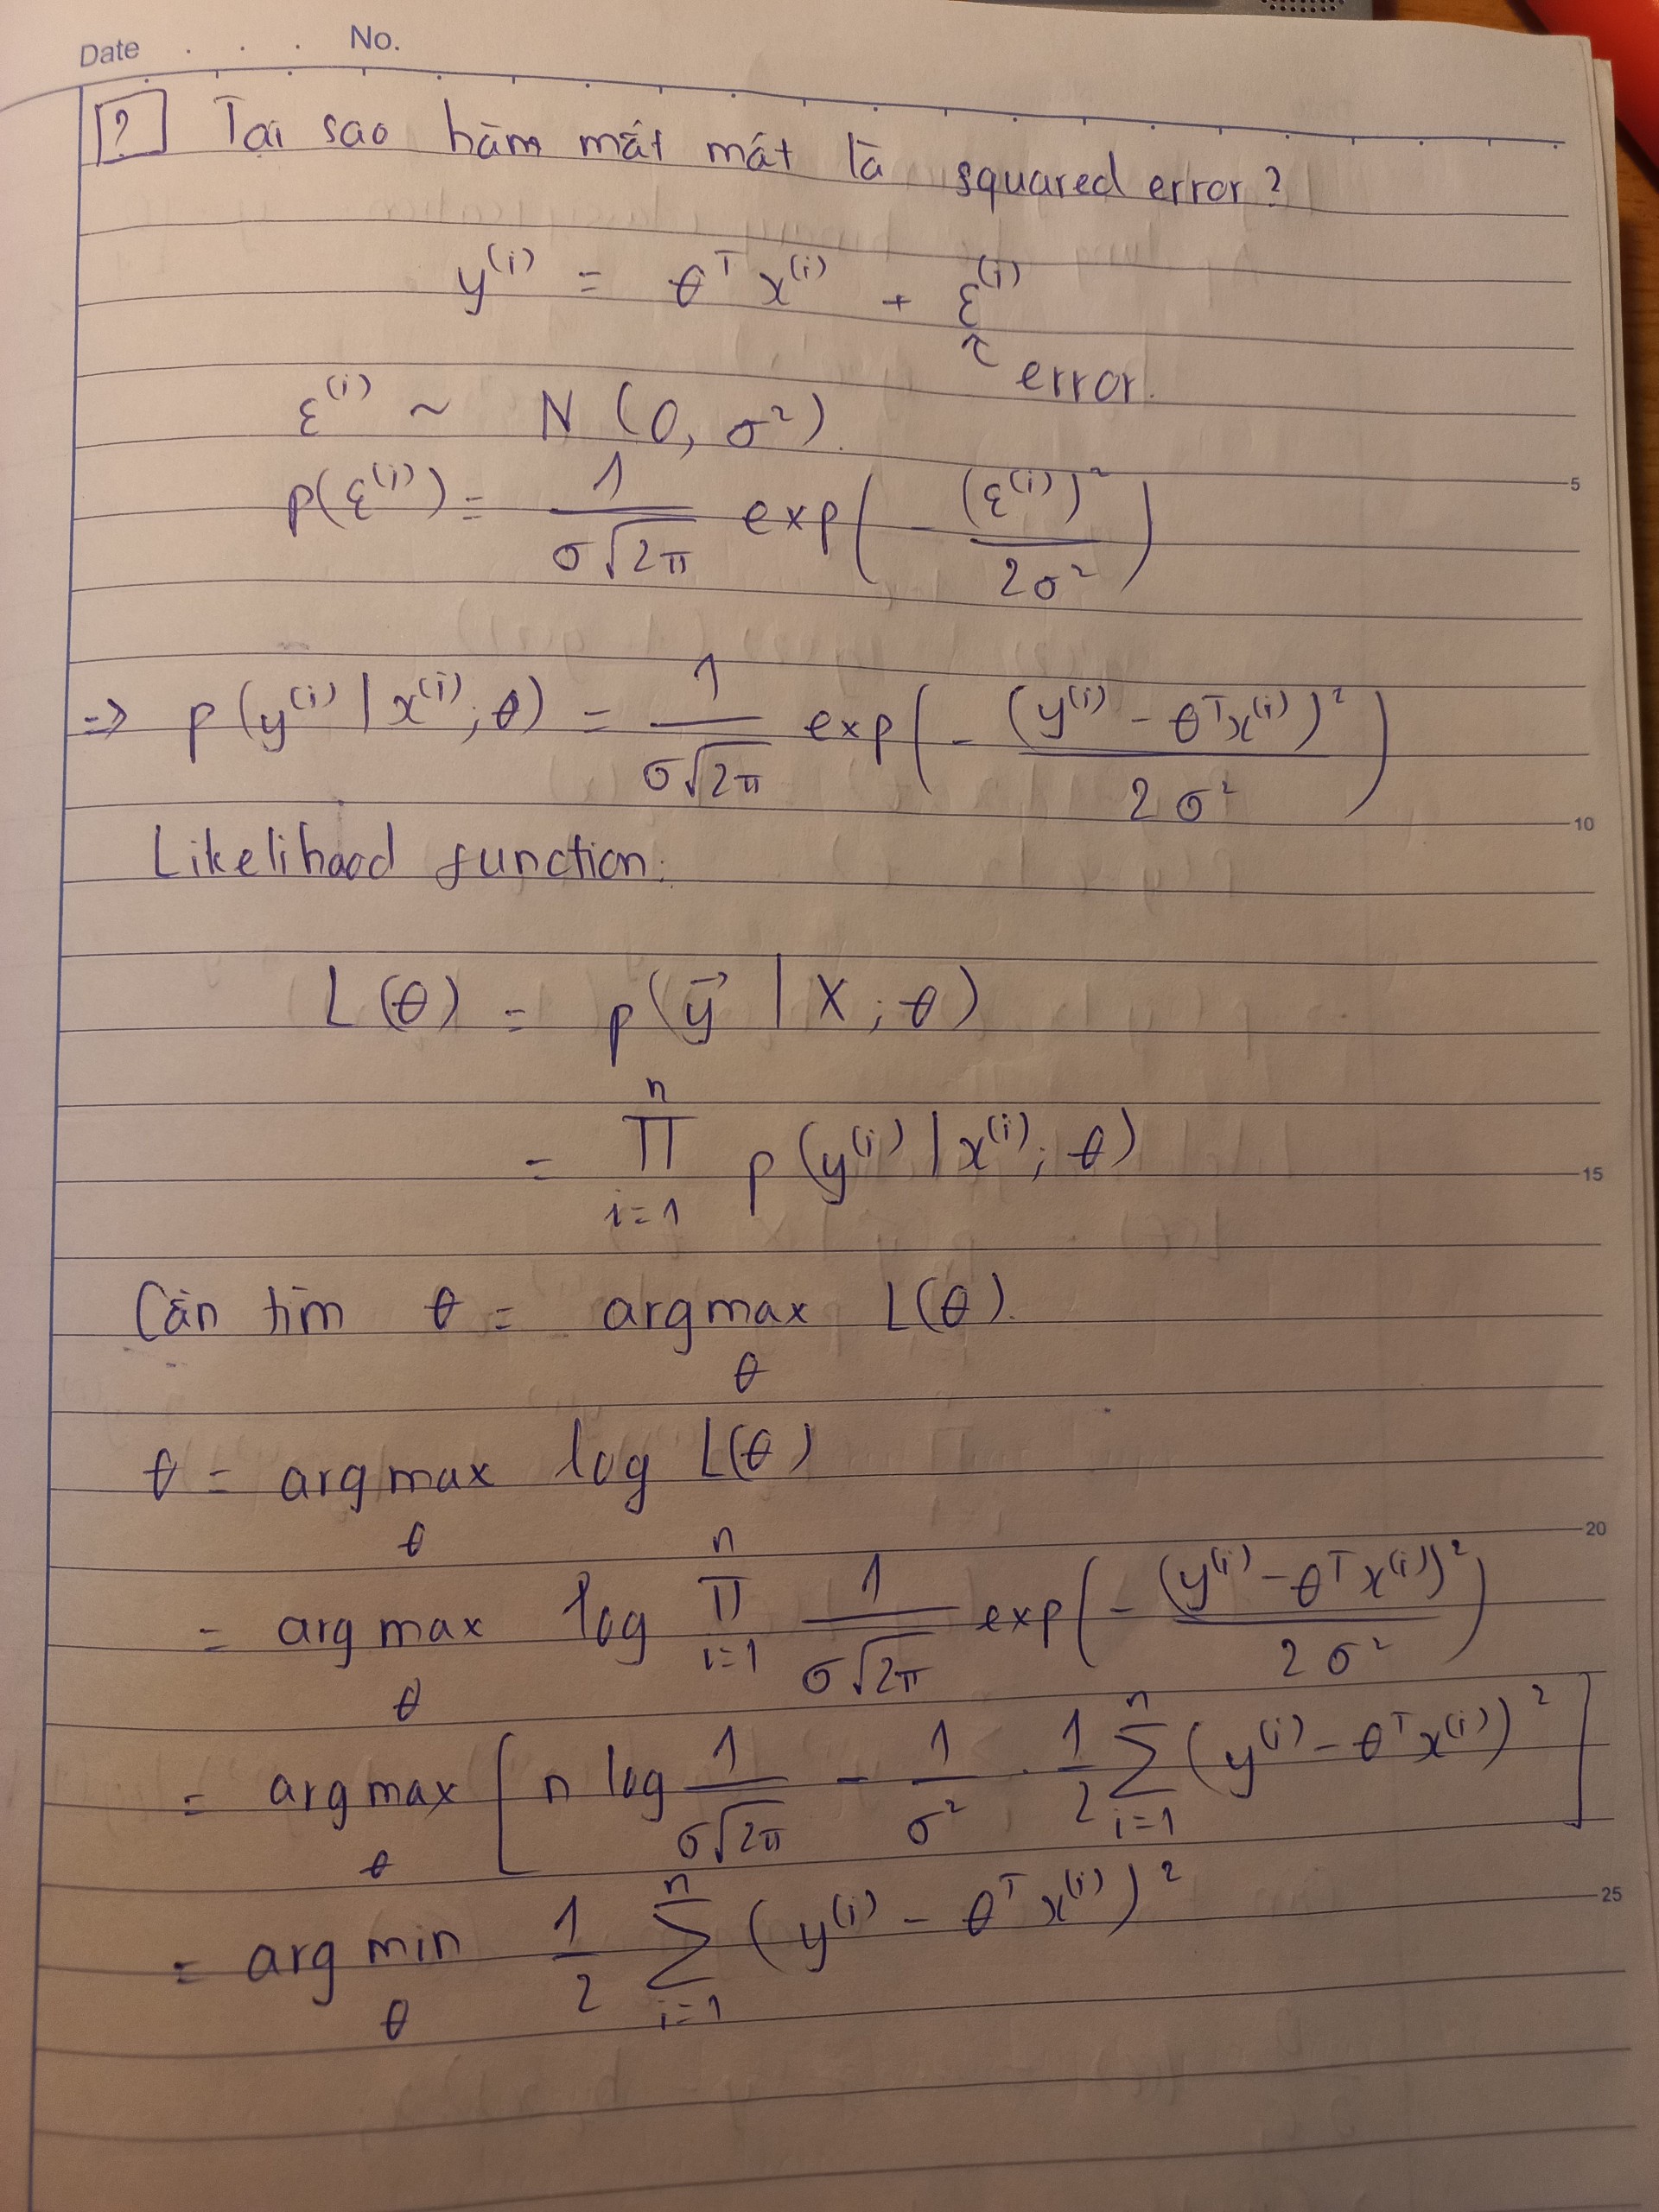 Date . . . No.
? Tại sao hàm mất mát là squared error?
y⁽ⁱ⁾ = θᵀ x⁽ⁱ⁾ + ε⁽ⁱ⁾
error.
ε⁽ⁱ⁾ ~ N (0, σ²).
p(ε⁽ⁱ⁾) = 1/(σ√2π) exp(- (ε⁽ⁱ⁾)²/2σ²)
5
⇒ p(y⁽ⁱ⁾ | x⁽ⁱ⁾; θ) = 1/(σ√2π) exp(- (y⁽ⁱ⁾ - θᵀx⁽ⁱ⁾)²/2σ²)
10
Likelihood function:
L(θ) = p(y⃗ | X; θ)
= ∏ᵢ₌₁ⁿ p(y⁽ⁱ⁾ | x⁽ⁱ⁾; θ)
15
Cần tìm θ = arg max_θ L(θ).
θ = arg max_θ log L(θ)
20
= arg max_θ log ∏ᵢ₌₁ⁿ 1/(σ√2π) exp(- (y⁽ⁱ⁾ - θᵀx⁽ⁱ⁾)²/2σ²)
= arg max_θ [n log 1/(σ√2π) - 1/σ² · 1/2 ∑ᵢ₌₁ⁿ (y⁽ⁱ⁾ - θᵀx⁽ⁱ⁾)²]
25
= arg min_θ 1/2 ∑ᵢ₌₁ⁿ (y⁽ⁱ⁾ - θᵀx⁽ⁱ⁾)²